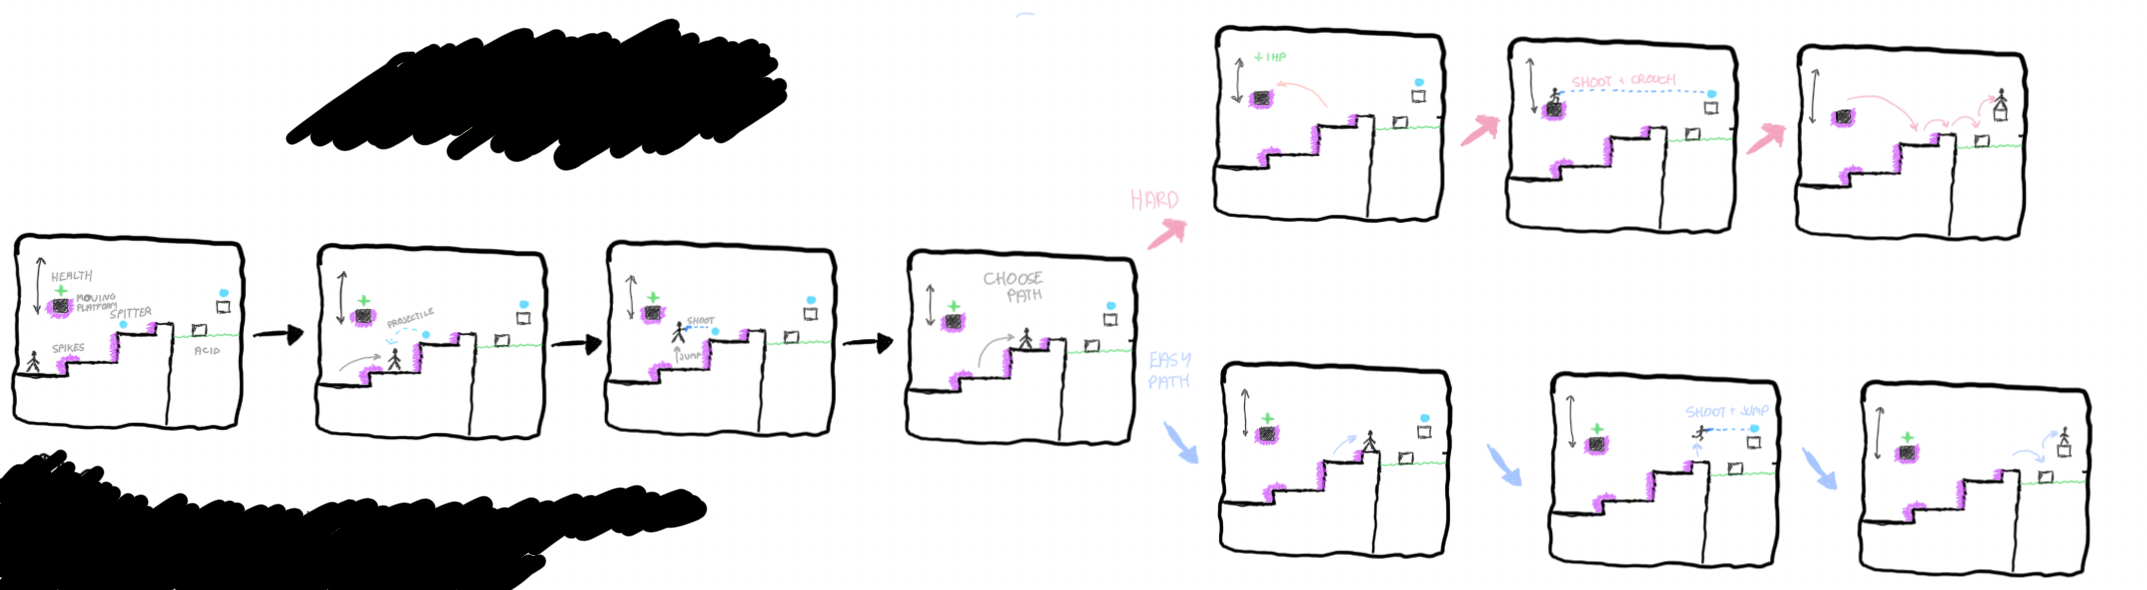 HEALTH
MOVING
PLATFORM
SPITTER
SPIKES
ACID
PROJECTILE
SHOOT
JUMP
CHOOSE
PATH
HARD
+1HP
SHOOT + CROUCH
EASY
PATH
SHOOT + JUMP